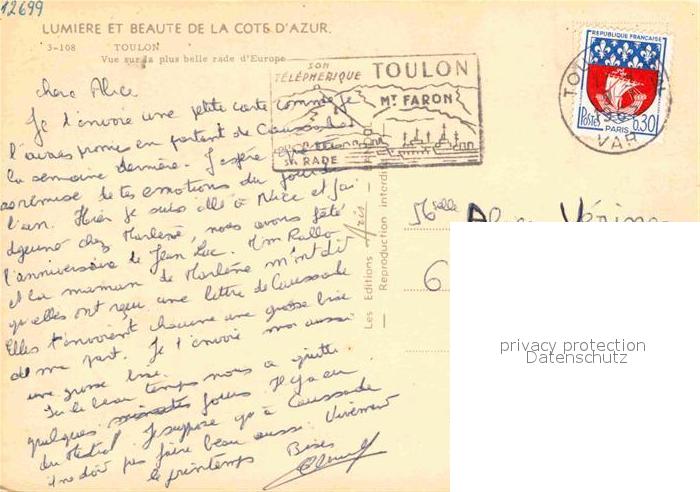 12699
LUMIERE ET BEAUTE DE LA COTE D'AZUR.
3-108 TOULON
Vue sur la plus belle rade d'Europe
SON
TÉLÉPHERIQUE
TOULON
MT FARON
SA RADE
REPUBLIQUE FRANÇAISE
POSTES PARIS 0,30
VAR
chère Alice
Je t'envoie une petite carte comme je
l'avais promis en partant de Caussade
la semaine dernière. J'espère que tu
es remise de tes émotions du jour de
l'an. Hier je suis allé à Nice et j'ai
déjeuné chez Marlène, nous avons fêté
l'anniversaire de Jean Luc. Mme Rallo
et la maman de Marlène m'ont dit
qu'elles ont reçu une lettre de Caussade
Elles t'envoient chacune une grosse bise
de ma part. Je t'envoie moi aussi
une grosse bise.
Ici le beau temps nous a quitté
quelques jours. Il y a eu
du Mistral. Je suppose qu'à Caussade
il ne doit pas faire beau aussi. Vivement
le printemps Bises
Les Editions Aris
Reproduction interdite
Melle Alice
6
privacy protection
Datenschutz